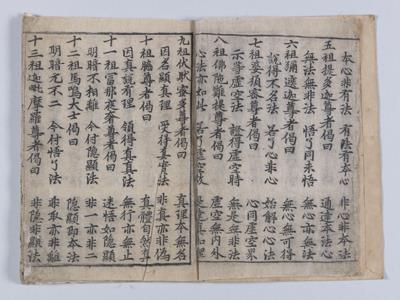 本心非有法 有法有本心 非心非本法
五祖提多迦尊者偈曰 通達本法心
無法無非法 悟了同未悟 無心亦無法
六祖彌遮迦尊者偈曰 無心無可得
說得不名法 若了心非心 始解心心法
七祖婆須密尊者偈曰 心同虛空界
示等虛空法 證得虛空時 無是無非法
八祖佛陁難提尊者偈曰 虛空無內外
心法亦如此 若了虛空故 是達真如理
九祖伏䭾密多尊者偈曰 真理本無名
因名顯真理 受得真實法 非真亦非僞
十祖脇尊者偈曰 真體自然真
因真說有理 領得真真法 無行亦無止
十一祖富那夜奢尊者偈曰 迷悟如隱顯
明暗不相離 今付隱顯法 非一亦非二
十二祖馬鳴大士偈曰 隱顯即本法
明暗元不二 今付悟了法 非取亦非離
十三祖迦毗摩羅尊者偈曰 非隱非顯法